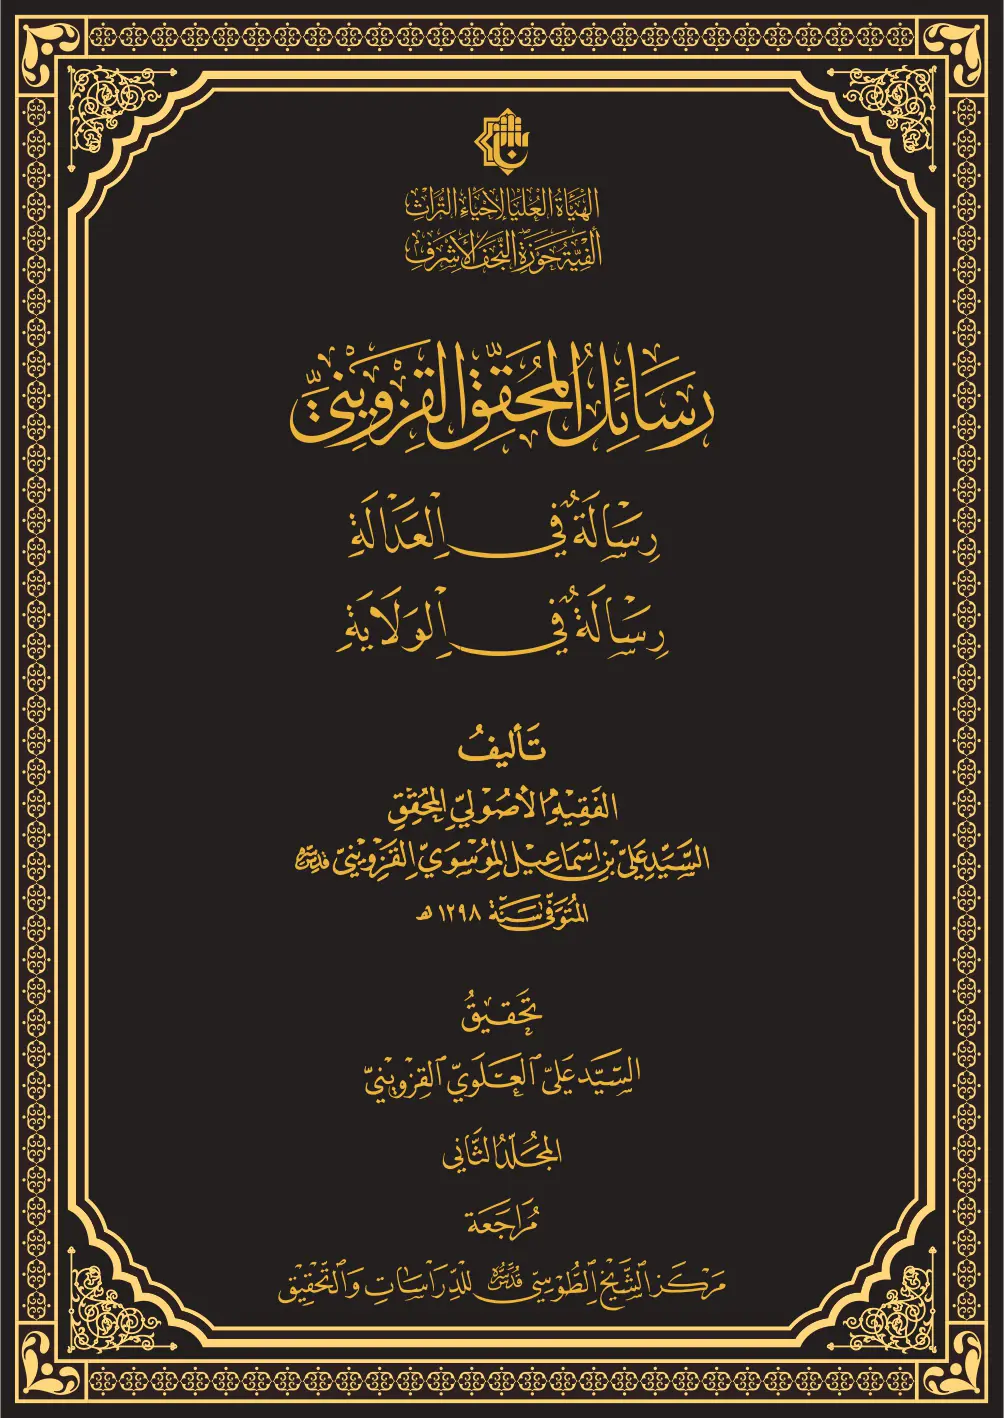 الهيأة العليا لإحياء التراث
ألفية حوزة النجف الأشرف
رَسَائِلُ المُحَقِّقِ القَزْوِينِيِّ
رِسَالَةٌ فِي العَدَالَةِ
رِسَالَةٌ فِي الوَلَايَةِ
تَأليفُ
الفَقِيْهِ الأُصُوْلِيِّ المُحَقِّقِ
السَّيِّدِ عَلِيِّ بْنِ اِسْمَاعِيْلَ المُوْسَوِيِّ القَزْوِيْنِيِّ قدس سره
المُتَوَفَّى سَنَةَ ١٢٩٨ هـ
تَحْقِيْقُ
السَّيِّد عَلِيّ العَلَوِيّ القَزْوِيْنِيّ
المُجَلَّدُ الثَّانِي
مُرَاجَعَة
مَرْكَز الشَّيْخ الطُّوسِيّ قدس سره لِلدِّرَاسَاتِ وَالتَّحْقِيْقِ